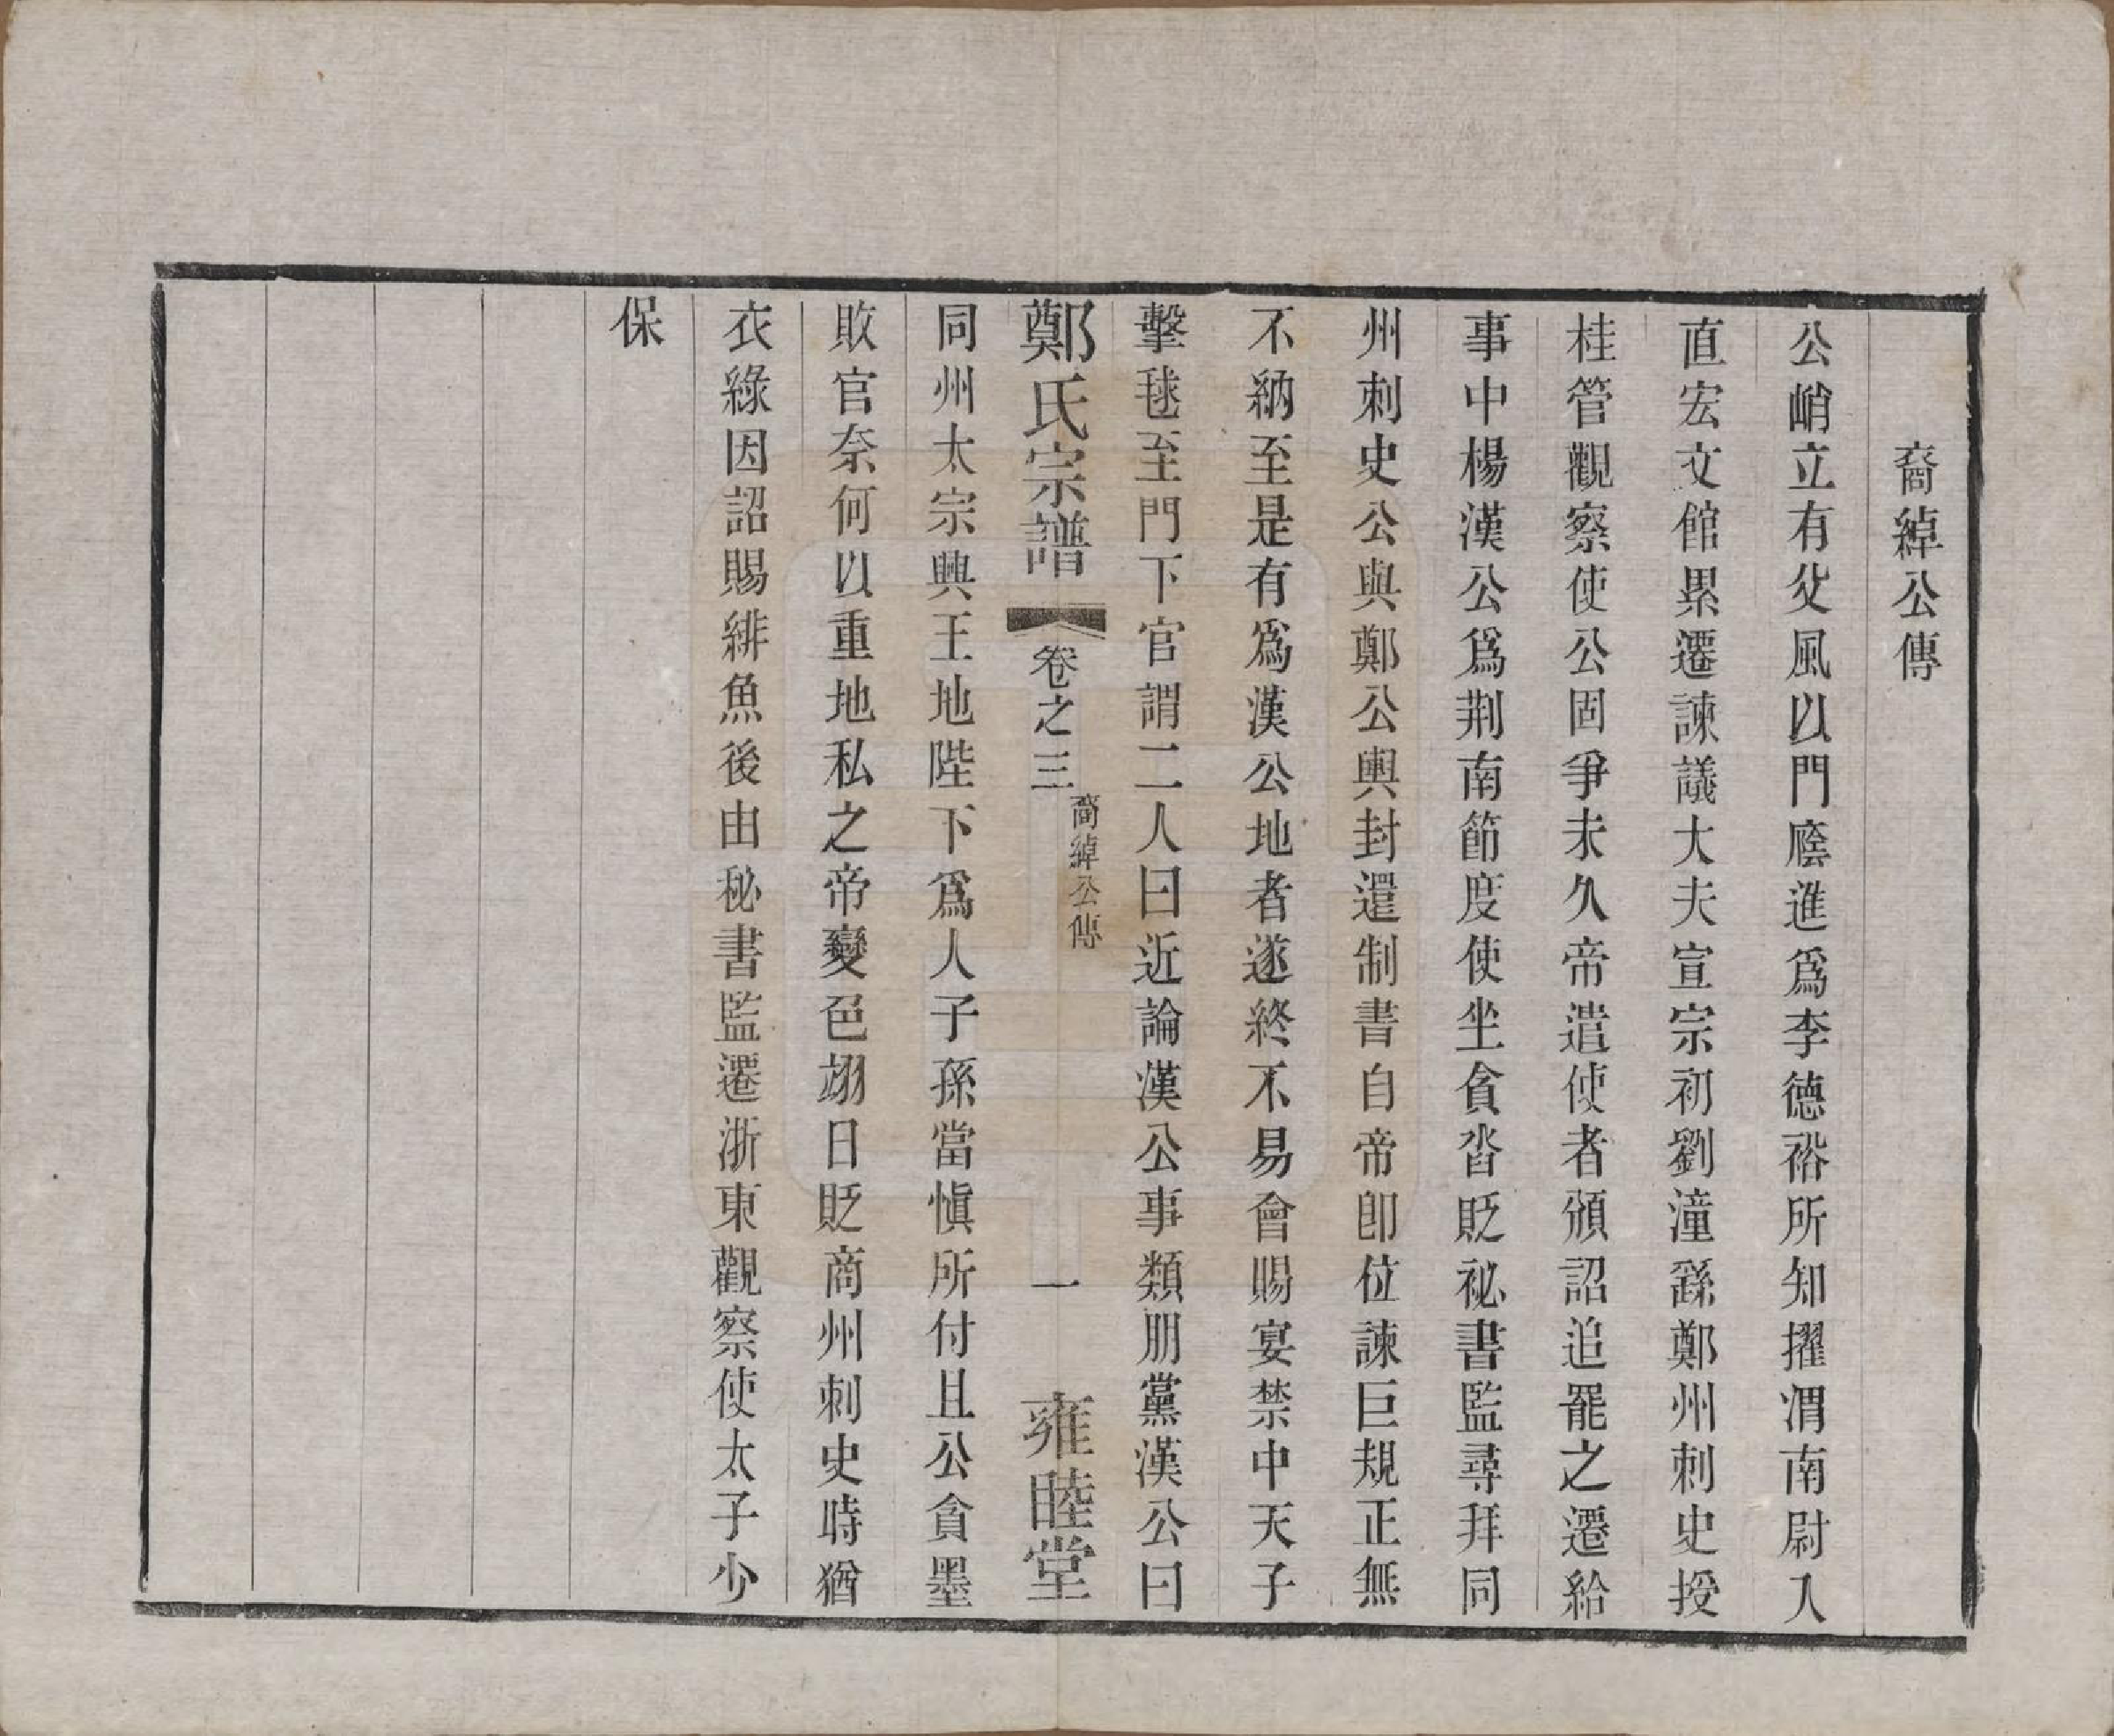 裔綽公傳
公峭立有父風以門廕進爲李德裕所知擢渭南尉入
直宏文館累遷諫議大夫宣宗初劉潼繇鄭州刺史授
桂管觀察使公固爭未久帝遣使者頒詔追罷之遷給
事中楊漢公爲荆南節度使坐貪沓貶祕書監尋拜同
州刺史公與鄭公輿封還制書自帝卽位諫臣規正無
不納至是有爲漢公地者遂終不易會賜宴禁中天子
擊毬至門下官謂二人曰近論漢公事類朋黨漢公曰
鄭氏宗譜 卷之三 裔綽公傳 一 雍睦堂
同州太宗興王地陛下爲人子孫當愼所付且公貪墨
敗官奈何以重地私之帝變色翊日貶商州刺史時猶
衣綠因詔賜緋魚後由秘書監遷浙東觀察使太子少
保